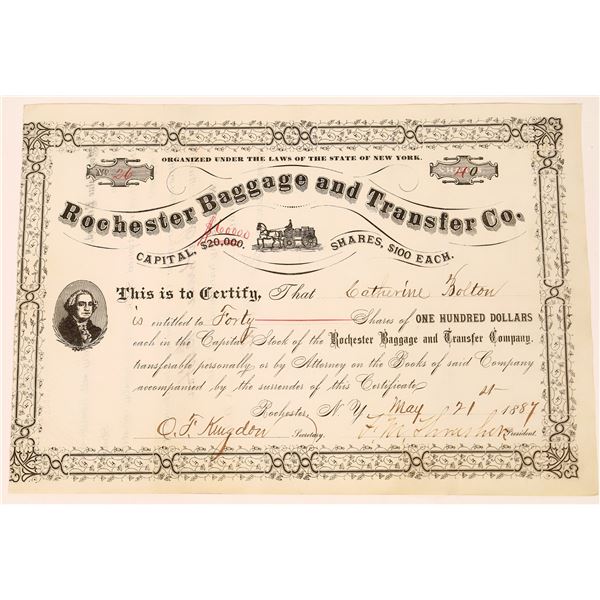 ORGANIZED UNDER THE LAWS OF THE STATE OF NEW YORK.
NO 26
40
Rochester Baggage and Transfer Co.
CAPITAL, $20,000. SHARES, $100 EACH.
This is to Certify, That Catherine Bolton
is entitled to Forty Shares of ONE HUNDRED DOLLARS
each in the Capital Stock of the Rochester Baggage and Transfer Company.
transferable personally or by Attorney on the Books of said Company
accompanied by the surrender of this Certificate
Rochester, N Y May 21st 1887
O. F. Kingdon Secretary. President.